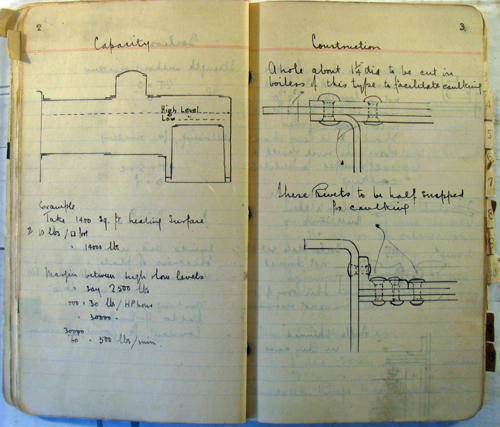 2
Capacity
High Level
Low
Example
Take 1400 sq. ft heating Surface
10 lbs / □ foot
= 14000 lbs
Margin between high & low levels
= say 2500 lbs
1000 = 30 lb / HP hour
= 30000
30000
60 = 500 lbs/min
3
Construction
A hole about 1¼ dia to be cut in
boilers of this type to facilitate caulking
These Rivets to be half snapped
for caulking